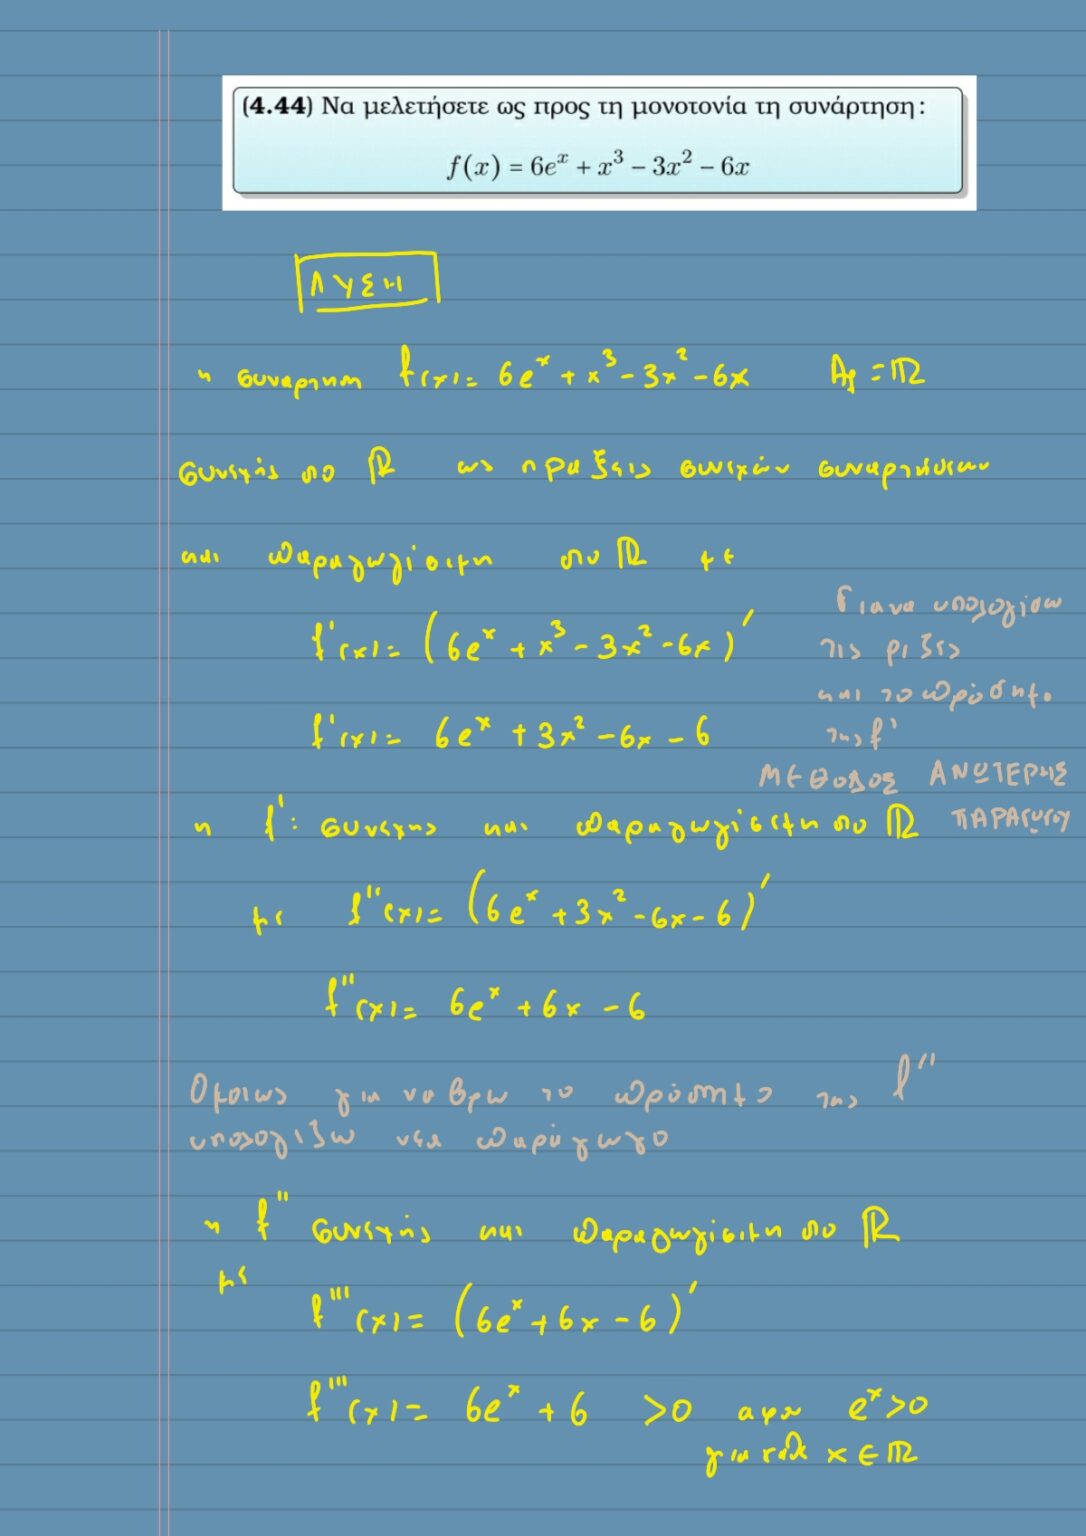 (4.44) Να μελετήσετε ως προς τη μονοτονία τη συνάρτηση:
f(x) = 6eˣ + x³ − 3x² − 6x
ΛΥΣΗ
η συναρτηση f(x) = 6eˣ + x³ − 3x² − 6x   A_f = ℝ
συνεχής στο ℝ ως πράξεις συνεχών συναρτήσεων
και παραγωγίσιμη στο ℝ με
f'(x) = (6eˣ + x³ − 3x² − 6x)'
f'(x) = 6eˣ + 3x² − 6x − 6
Για να υπολογίσω
τις ριζες
και το πρόσημο
της f'
ΜΕΘΟΔΟΣ ΑΝΩΤΕΡΗΣ
ΠΑΡΑΓΩΓΟΥ
η f': συνεχης και παραγωγίσιμη στο ℝ
με f''(x) = (6eˣ + 3x² − 6x − 6)'
f''(x) = 6eˣ + 6x − 6
Ομοιως για να βρω το πρόσημο της f''
υπολογιζω νεα παράγωγο
η f'' συνεχής και παραγωγίσιμη στο ℝ
με
f'''(x) = (6eˣ + 6x − 6)'
f'''(x) = 6eˣ + 6 > 0 αφου eˣ > 0
για καθε x ∈ ℝ